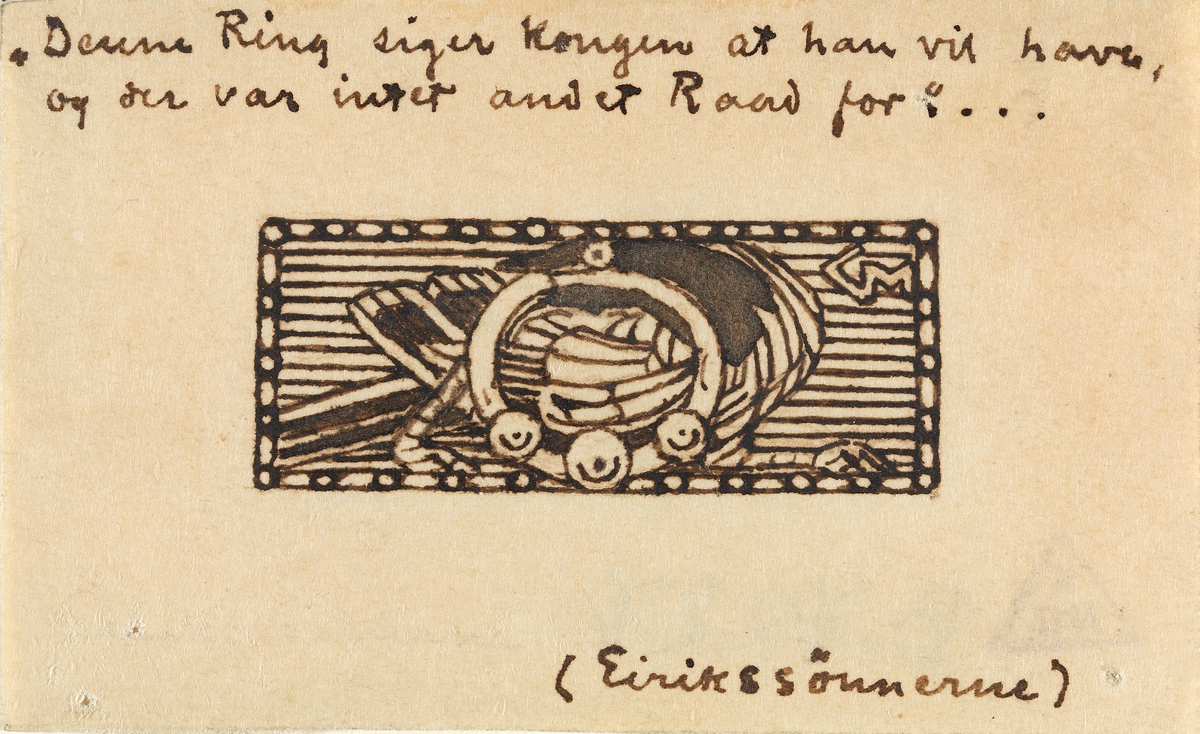 „Denne Ring siger Kongen at han vil have,
og der var intet andet Raad for“...
GM
(Eirikssönnerne)